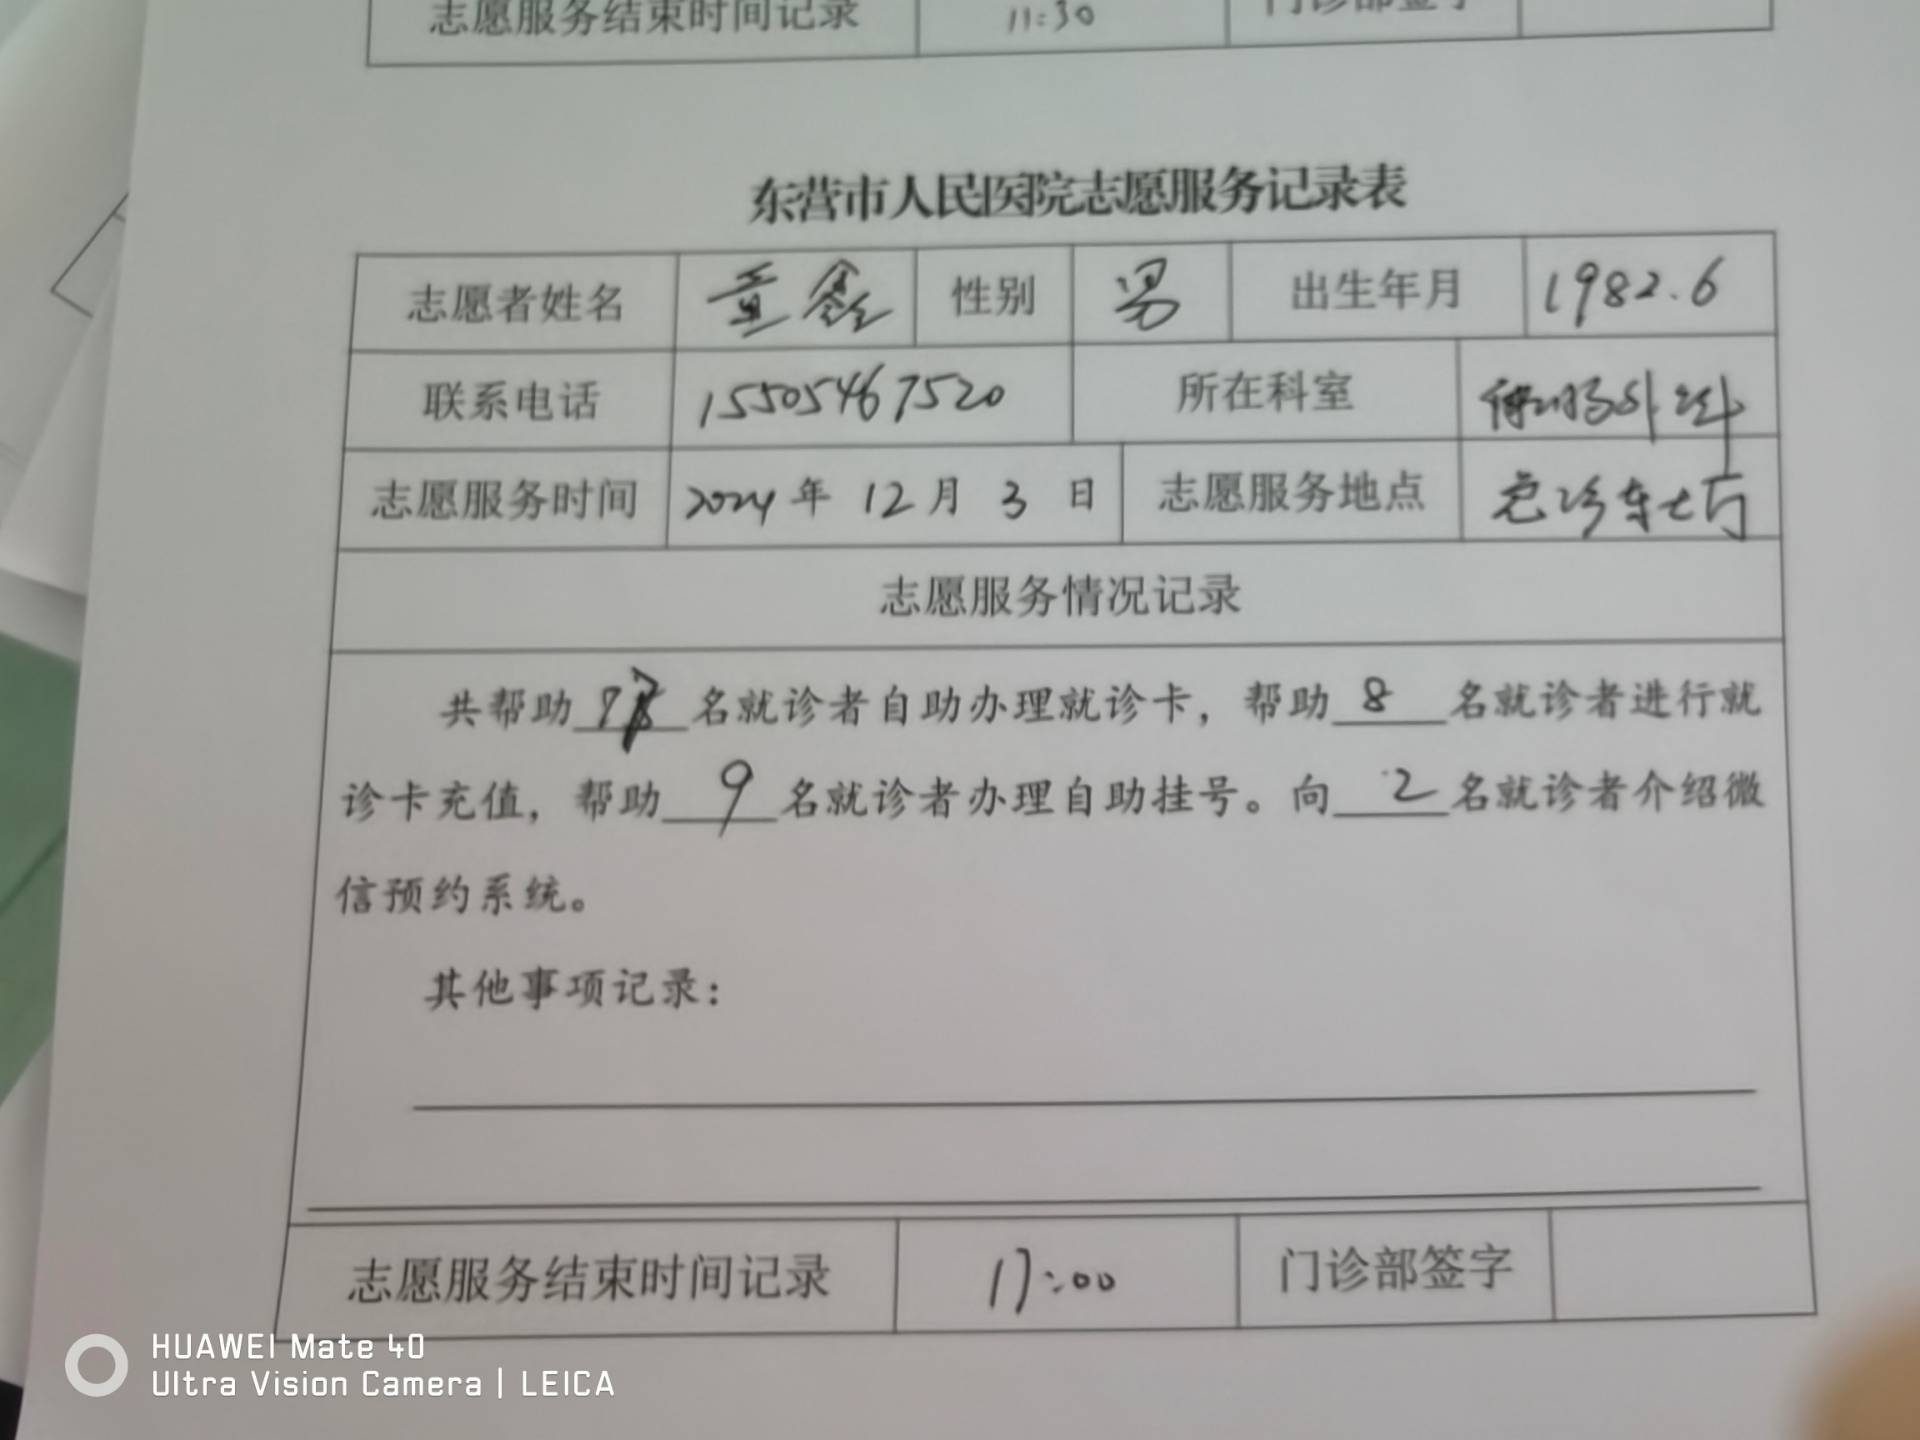 志愿服务结束时间记录 11:30 门诊部签字
东营市人民医院志愿服务记录表
志愿者姓名 童鑫 性别 男 出生年月 1982.6
联系电话 15505467520 所在科室
志愿服务时间 2024年 12月 3 日 志愿服务地点
志愿服务情况记录
共帮助 7 名就诊者自助办理就诊卡，帮助 8 名就诊者进行就
诊卡充值，帮助 9 名就诊者办理自助挂号。向 2 名就诊者介绍微
信预约系统。
其他事项记录：
志愿服务结束时间记录 17:00 门诊部签字
HUAWEI Mate 40
Ultra Vision Camera | LEICA